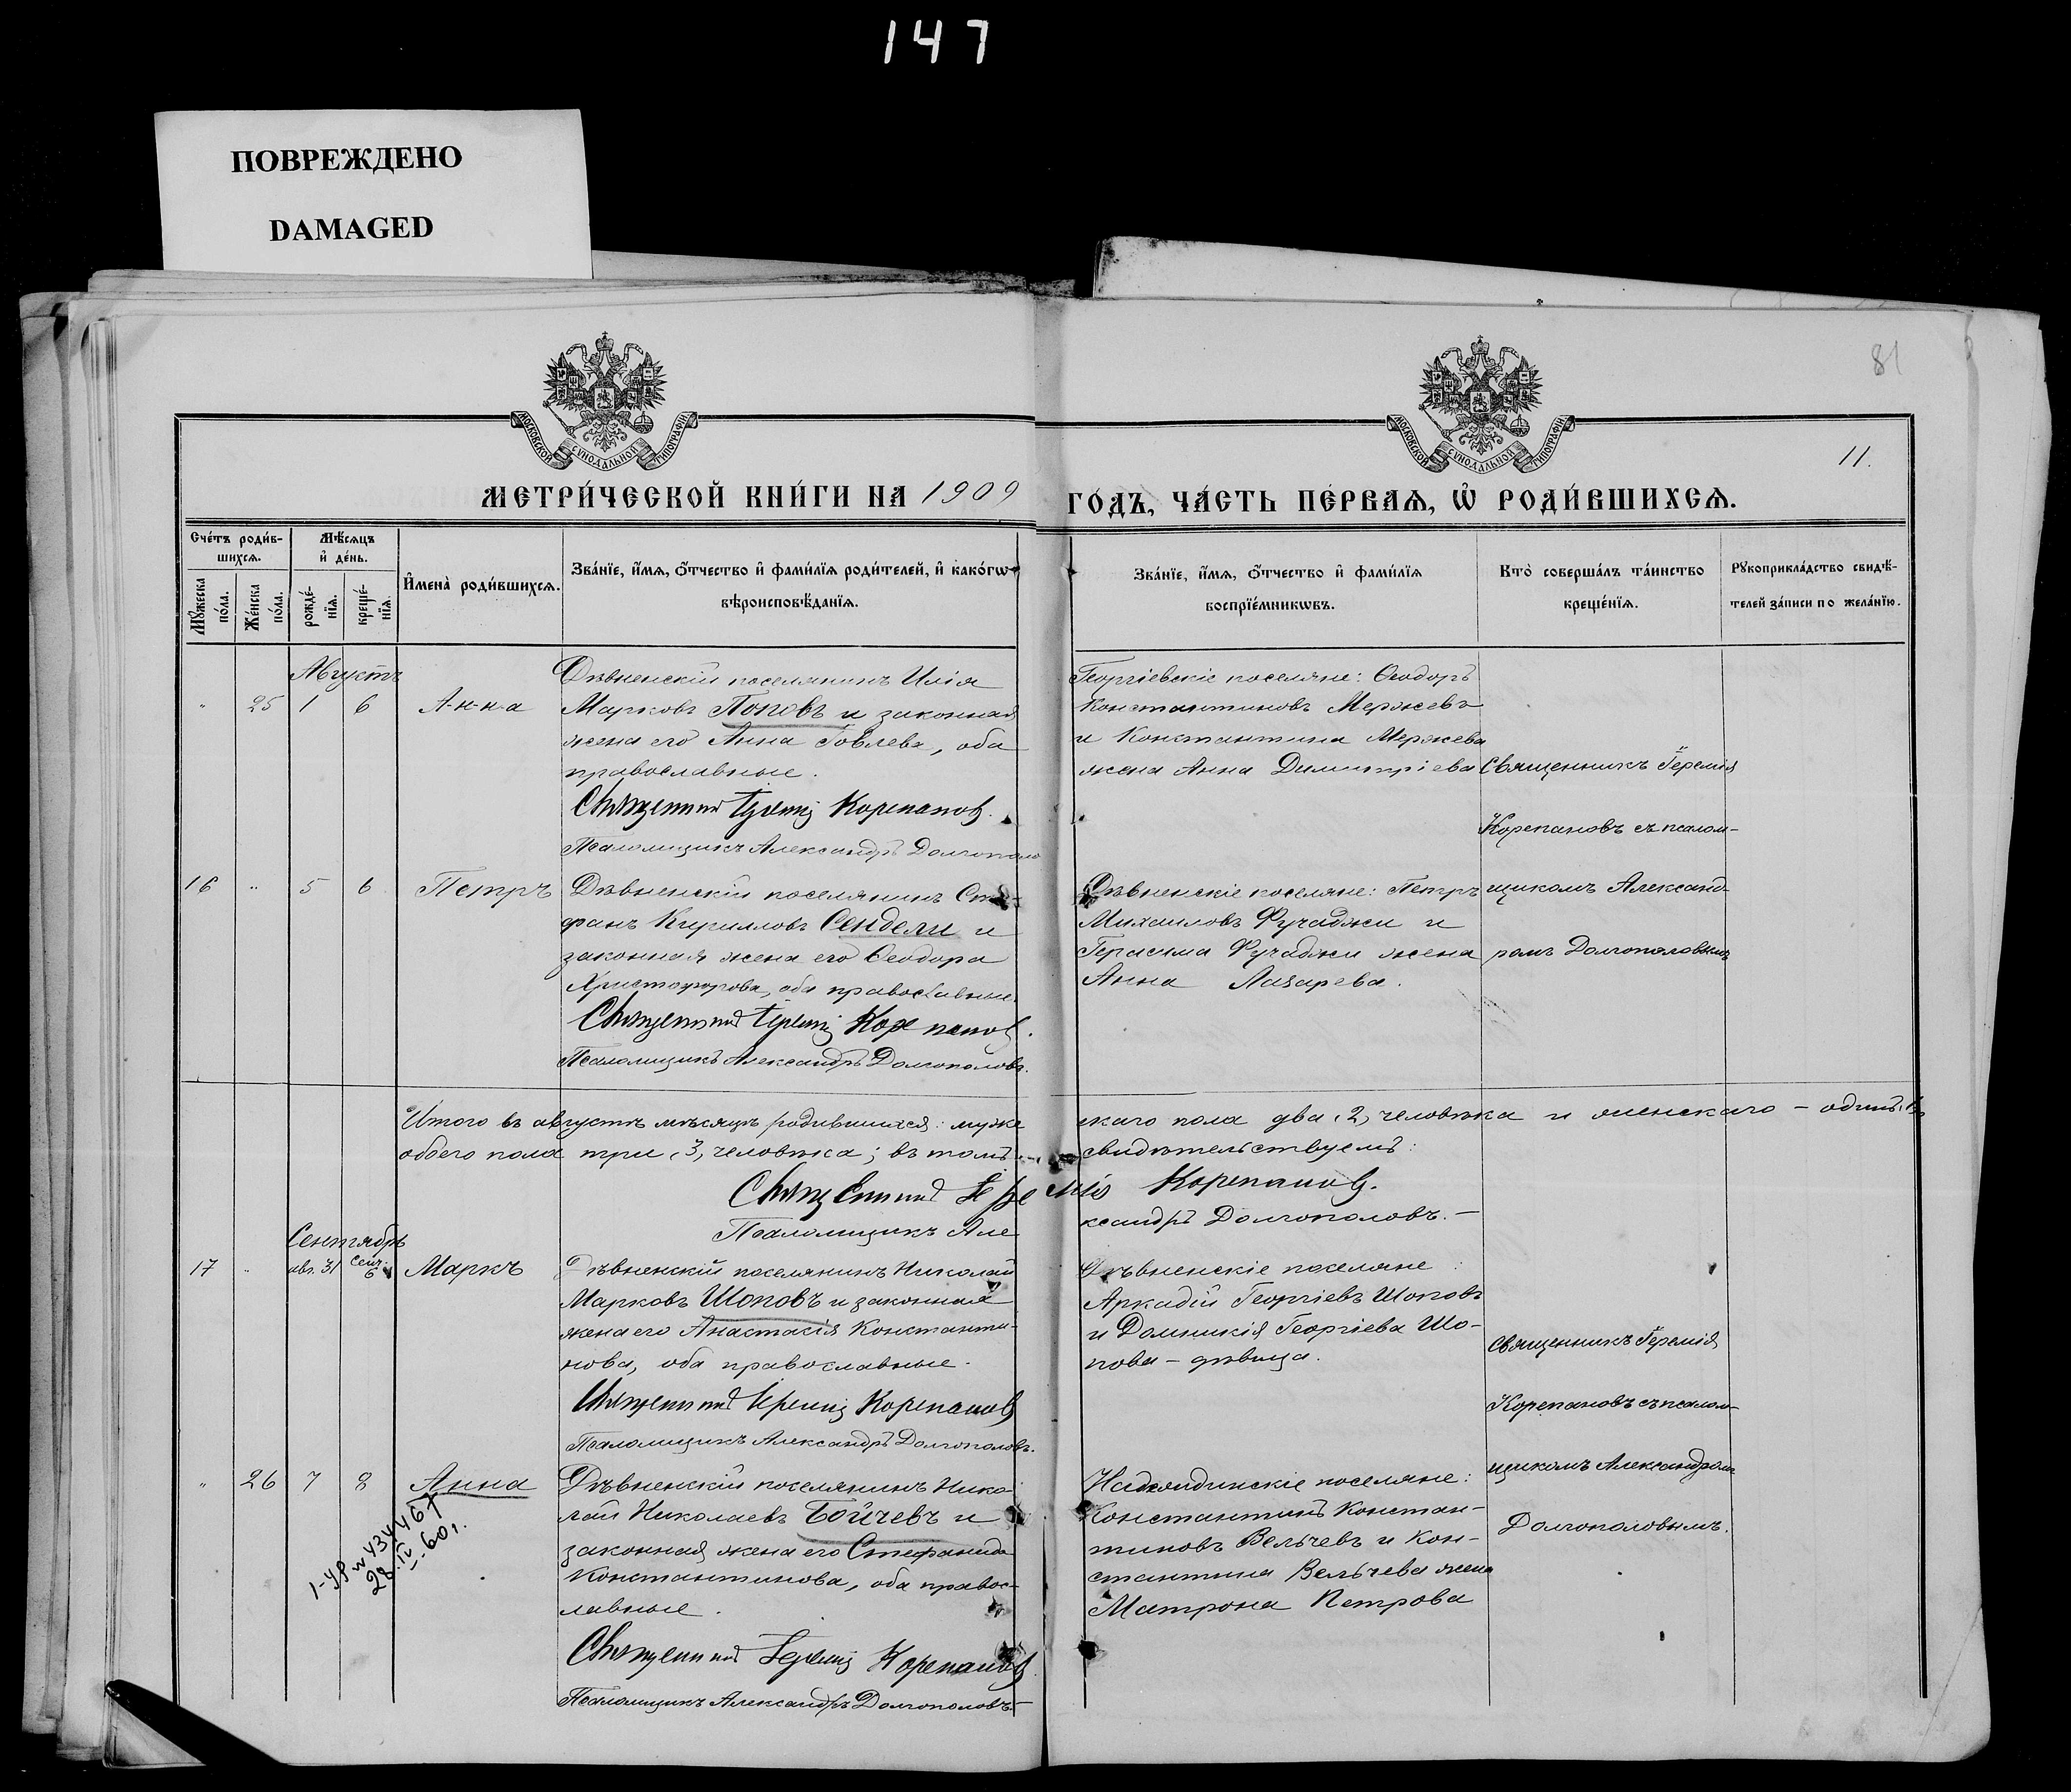 147
ПОВРЕЖДЕНО
DAMAGED
81
МОСКОВСКОЙ СУНОДАЛЬНОЙ ТИПОГРАФІИ
МОСКОВСКОЙ СУНОДАЛЬНОЙ ТИПОГРАФІИ
11.
МЕТРИ́ЧЕСКОЙ КНИ́ГИ НА 1909 ГО́ДЪ, ЧА́СТЬ ПЕ́РВАѦ, Ѡ҆ РОДИ́ВШИХСѦ.
Сче́тъ роди́в-
шихсѧ.
Мꙋ́жеска
по́ла.
Же́нска
по́ла.
Мѣ́сѧцъ
и҆ де́нь.
рожде́-
нїѧ.
креще́-
нїѧ.
И҆мена̀ роди́вшихсѧ.
Зва́нїе, и҆́мѧ, ѻ҆́тчество и҆ фами́лїѧ роди́телей, и҆ како́гѡ
вѣроисповѣ́данїѧ.
Зва́нїе, и҆́мѧ, ѻ҆́тчество и҆ фами́лїѧ
воспрїе́мникѡвъ.
Кто̀ соверша́лъ та́инство
креще́нїѧ.
Рꙋкоприкла́дство свидѣ́-
телей за́писи по жела́нїю.
Августъ
" 25 1 6 Анна
Дѣвненскій поселянинъ Илія
Марковъ Поповъ и законная
жена его Анна Іовлева, оба
православные.
Священникъ Іеремія Корепановъ.
Псаломщикъ Александръ Долгополо
Георгіевскіе поселяне: Ѳеодоръ
Константиновъ Мержевъ
и Константина Мержева
жена Анна Димитріева
Священникъ Іеремія
Корепановъ съ псалом-
щикомъ Александ-
ромъ Долгополовымъ
16 " 5 6 Петръ
Дѣвненскій поселянинъ Сте-
фанъ Кирилловъ Сендели и
законная жена его Ѳеодора
Христофорова, оба православные.
Священникъ Іеремія Корепановъ.
Псаломщикъ Александръ Долгополовъ.
Дѣвненскіе поселяне: Петръ
Михаиловъ Фучаджи и
Герасима Фучаджи жена
Анна Лазарева.
Итого въ августѣ мѣсяцѣ родившихся: мужескаго пола два, 2, человѣка и женскаго – одинъ, 1,
обоего пола три, 3, человѣка; въ томъ свидѣтельствуемъ:
Священникъ Іеремія Корепановъ.
Псаломщикъ Александръ Долгополовъ.–
Сентябрь
17 " авг. 31 Сент. 6 Маркъ
Дѣвненскій поселянинъ Николай
Марковъ Шоповъ и законная
жена его Анастасія Константи-
нова, оба православные.
Священникъ Іеремія Корепановъ
Псаломщикъ Александръ Долгополовъ.
Дѣвненскіе поселяне:
Аркадій Георгіевъ Шоповъ
и Домникія Георгіева Шо-
пова – дѣвица.
Священникъ Іеремія
Корепановъ съ псалом-
щикомъ Александромъ
Долгополовымъ.
" 26 7 8 Анна
1-УР № 434467
28.IV-60г.
Дѣвненскій поселянинъ Нико-
лай Николаевъ Бойчевъ и
законная жена его Стефанида
Константинова, оба правос-
лавные.
Священникъ Іеремія Корепановъ
Псаломщикъ Александръ Долгополовъ.–
Надеждинскіе поселяне:
Константинъ Констан-
тиновъ Вельчевъ и Кон-
стантина Вельчева жена
Матрона Петрова